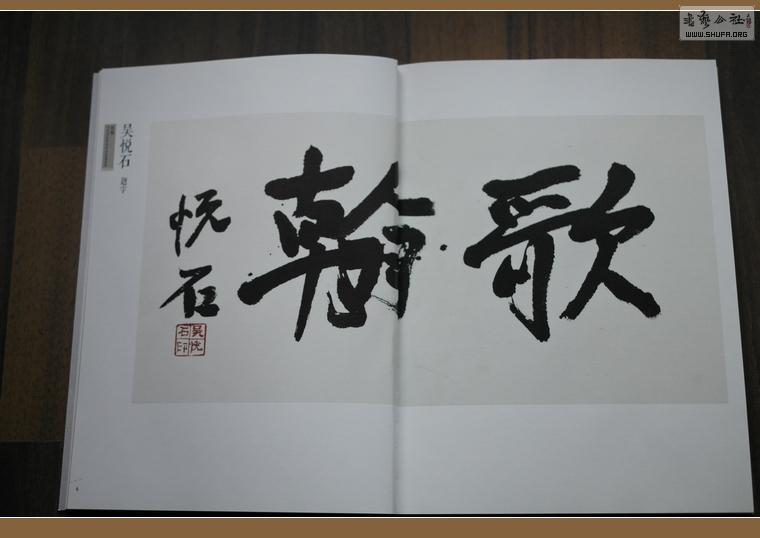 書藝公社
WWW.SHUFA.ORG
吴悦石
题字
歌翰
悦石
吴悦石印
6